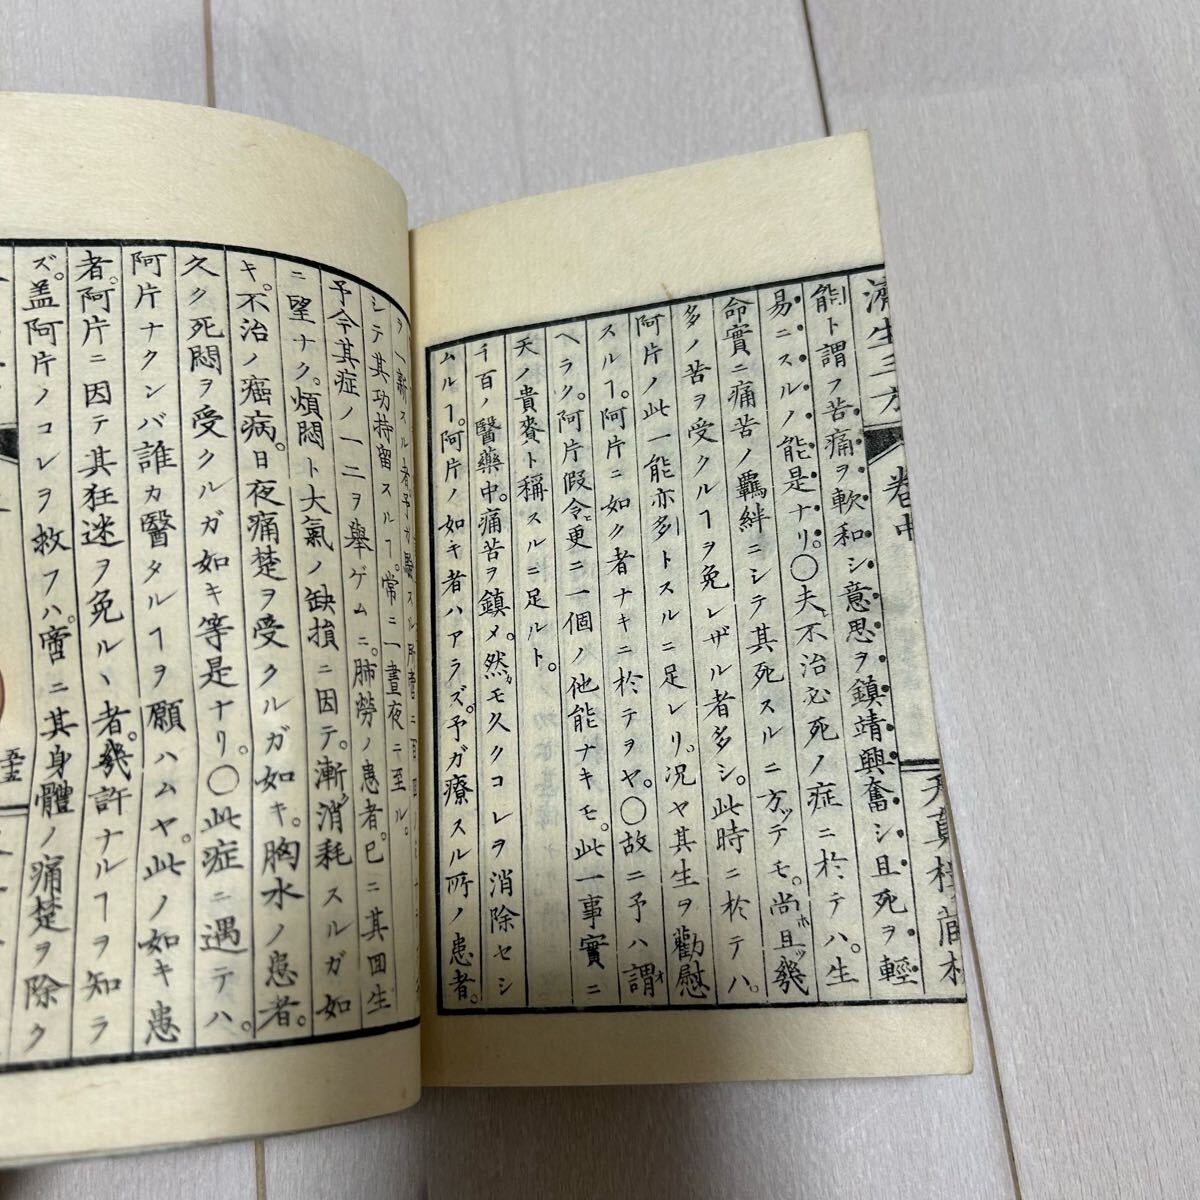 濟生三方 卷中
能ト謂フ苦痛ヲ軟和シ意思ヲ鎮靖興奮シ且死ヲ輕
易ニスルノ能是ナリ。〇夫レ不治必死ノ症ニ於テハ。生
命實ニ痛苦ノ羈絆ニシテ其死スルニ方ッテモ。尚且幾
多ノ苦ヲ受クルヿヲ免レザル者多シ。此時ニ於テハ。
阿片ノ此一能亦多トスルニ足レリ。況ヤ其生ヲ勸慰
スルヿ。阿片ニ如ク者ナキニ於テヲヤ。〇故ニ予ハ謂
ヘラク。阿片假令ヒ更ニ一個ノ他能ナキモ。此一事實ニ
天ノ貴賚ト稱スルニ足ルト。
千百ノ醫藥中。痛苦ヲ鎮メ。然モ久クコレヲ消除セシ
ムルヿ。阿片ノ如キ者ハアラズ。予ガ療スル所ノ患者。
シテ其功持留スルヿ。常ニ一晝夜ニ至ル。
予今其症ノ一二ヲ擧ゲムニ。肺勞ノ患者。已ニ其回生
ニ望ナク。煩悶ト大氣ノ缺損ニ因テ。漸消耗スルガ如
キ。不治ノ癌病。日夜痛楚ヲ受クルガ如キ。胸水ノ患者。
久ク死悶ヲ受クルガ如キ等是ナリ。〇此症ニ遇テハ。
阿片ナクンバ誰カ醫タルヿヲ願ハムヤ。此ノ如キ患
者。阿片ニ因テ其狂迷ヲ免ルヽ者。幾許ナルヿヲ知ラ
ズ。蓋阿片ノコレヲ救フハ。啻ニ其身體ノ痛楚ヲ除ク